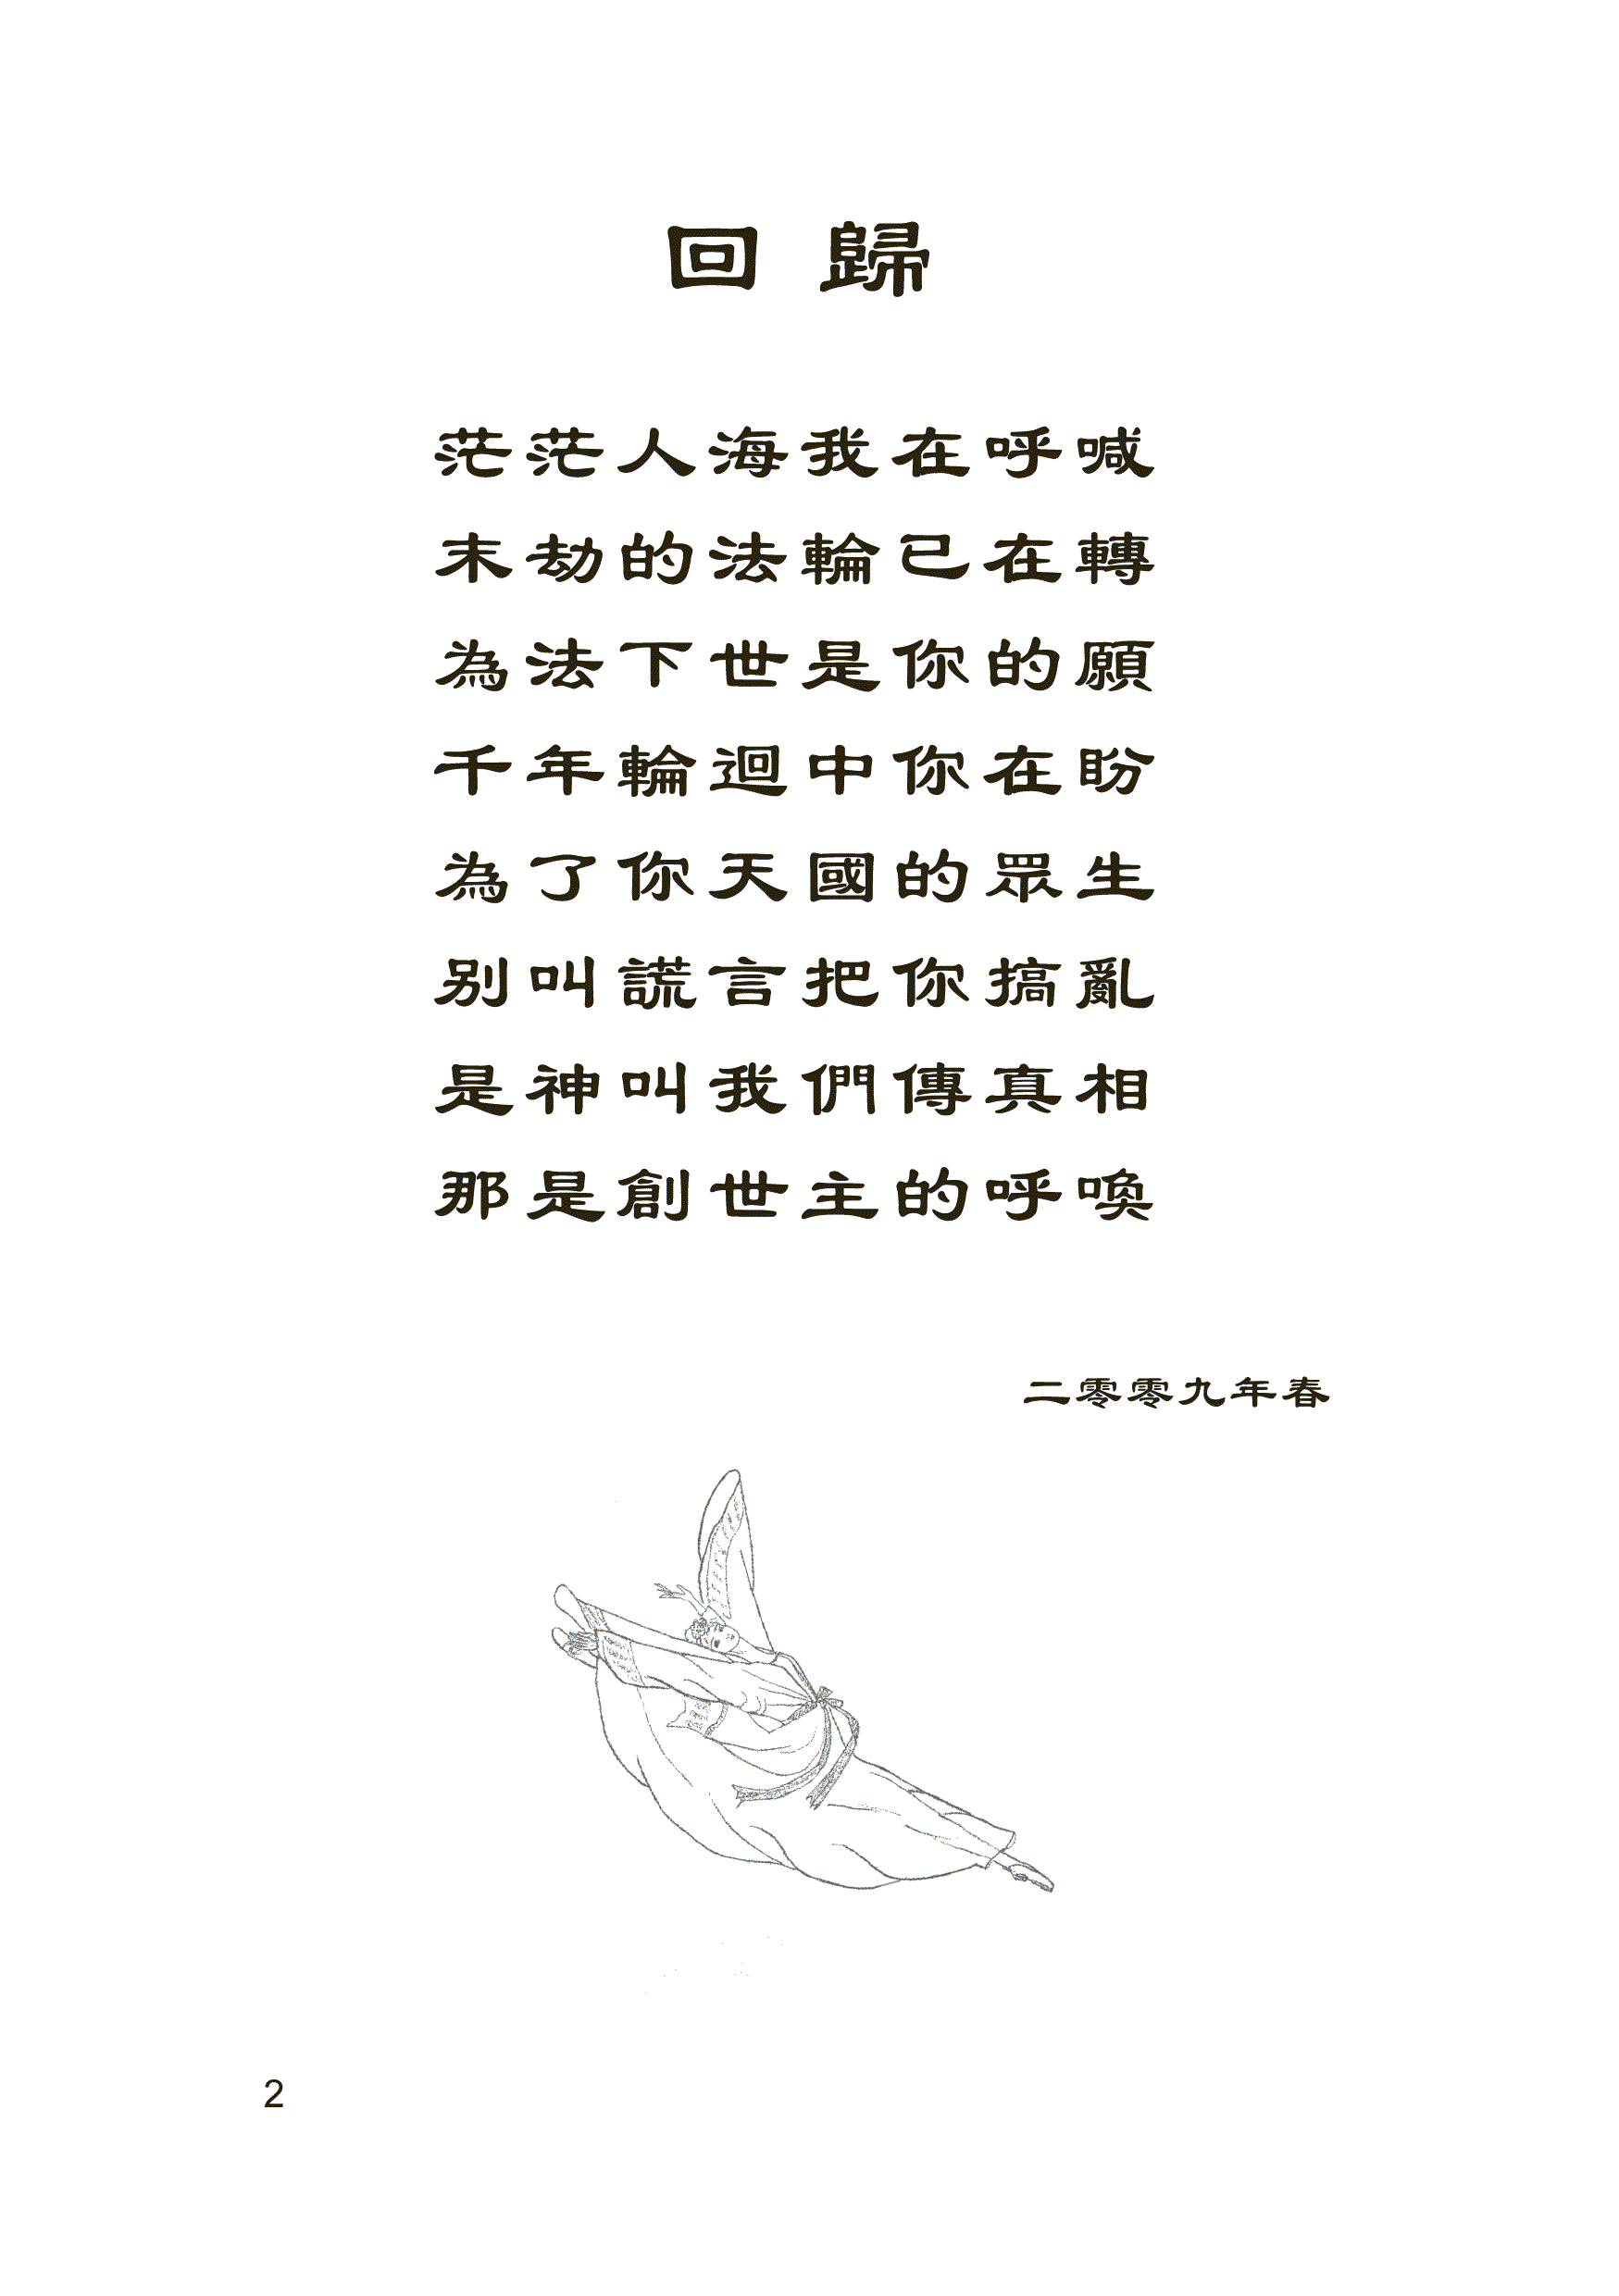 回歸
茫茫人海我在呼喊
末劫的法輪已在轉
為法下世是你的願
千年輪迴中你在盼
為了你天國的眾生
別叫謊言把你搞亂
是神叫我們傳真相
那是創世主的呼喚
二零零九年春
2